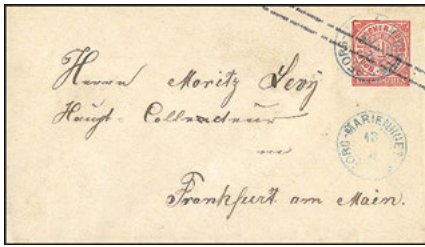 Herrn Moritz Levy
Haupt-Collecteur
in
Frankfurt am Main.
ORG-MARIENHUET
13